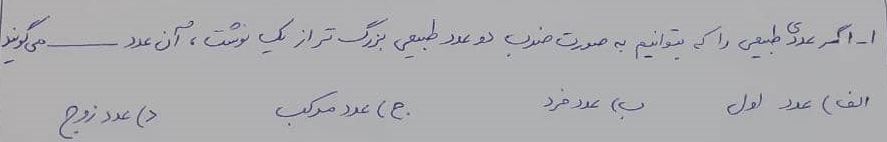 ۱ـ اگر عددی طبیعی را که بتوانیم به صورت ضرب دو عدد طبیعی بزرگ تر از یک نوشت، آن عدد ــــــ می گویند
الف) عدد اول ب) عدد فرد ج) عدد مرکب د) عدد زوج